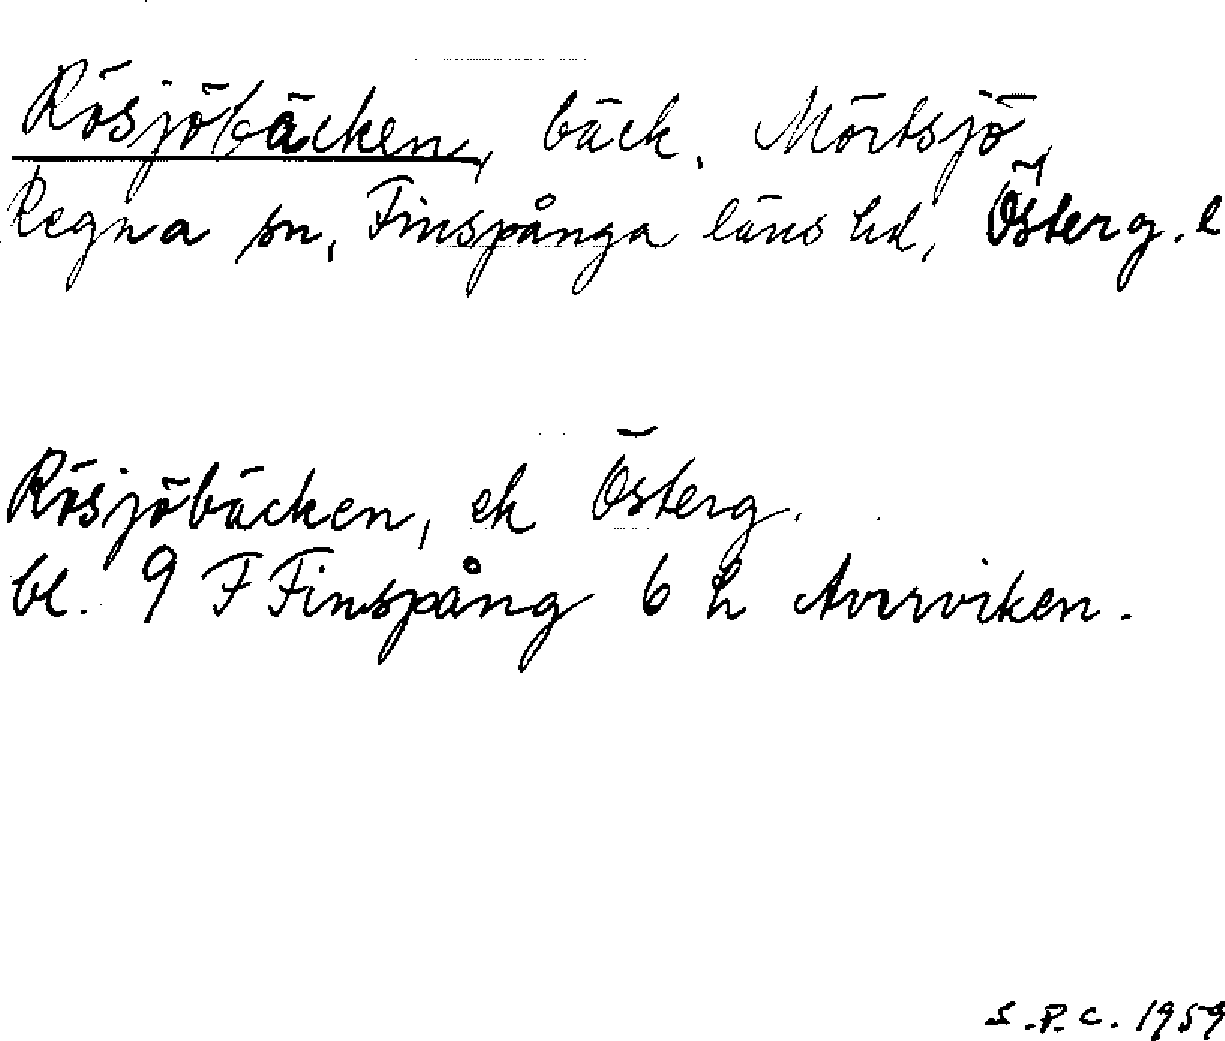 Rösjöbäcken, bäck. Mörtsjö,
Regna sn, Finspånga läns hd, Österg. l
Rösjöbäcken, ek Österg.
bl. 9 F Finspång 6 h Averviken.
S.P.C. 1959